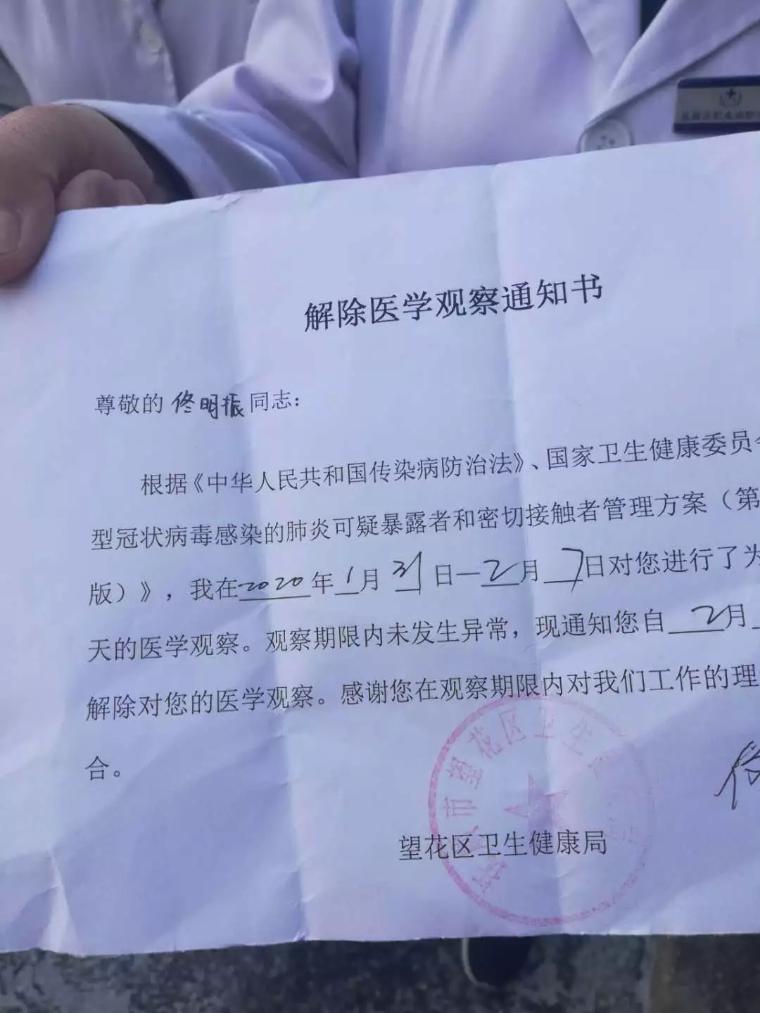 解除医学观察通知书
尊敬的佟明振同志:
根据《中华人民共和国传染病防治法》、国家卫生健康委员会
型冠状病毒感染的肺炎可疑暴露者和密切接触者管理方案（第
版）》，我在2020年1月31日—2月7日对您进行了为
天的医学观察。观察期限内未发生异常，现通知您自2月
解除对您的医学观察。感谢您在观察期限内对我们工作的理
合。
望花区卫生健康局
市望花区卫生